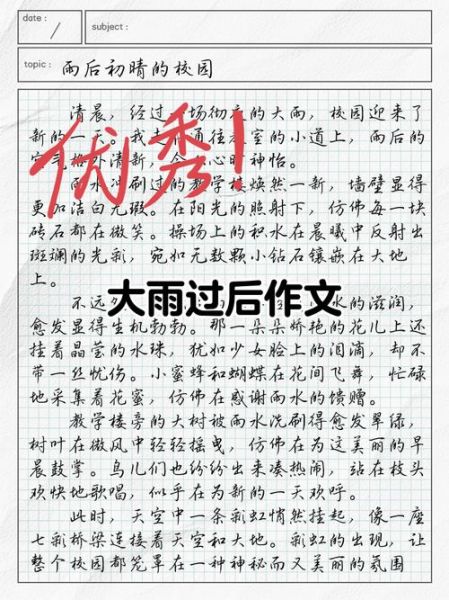 date :
subject :
/
topic : 雨后初晴的校园
清晨，经过一场彻夜的大雨，校园迎来了
新的一天。我走在通往教室的小道上，雨后的
空气格外清新，令人心旷神怡。
雨水冲刷过的教学楼焕然一新，墙壁显得
更加洁白无瑕。在阳光的照射下，仿佛每一块
砖石都在微笑。操场上的积水在晨曦中反射出
斑斓的光彩，宛如无数颗小钻石镶嵌在大地
上。
优秀!
大雨过后作文
不远处 水的滋润，
愈发显得生机勃勃。那一朵朵娇艳的花儿上还
挂着晶莹的水珠，犹如少女脸上的泪滴，却不
带一丝忧伤。小蜜蜂和蝴蝶在花间飞舞，忙碌
地采集着花蜜，仿佛在感谢雨水的馈赠。
教学楼旁的大树被雨水洗刷得愈发翠绿，
树叶在微风中轻轻摇曳，仿佛在为这美丽的早
晨鼓掌。鸟儿们也纷纷出来凑热闹，站在枝头
欢快地歌唱，似乎在为新的一天欢呼。
此时，天空中一条彩虹悄然挂起，像一座
七彩桥梁连接着天空和大地。彩虹的出现，让
整个校园都笼罩在一种神秘而又美丽的氛围